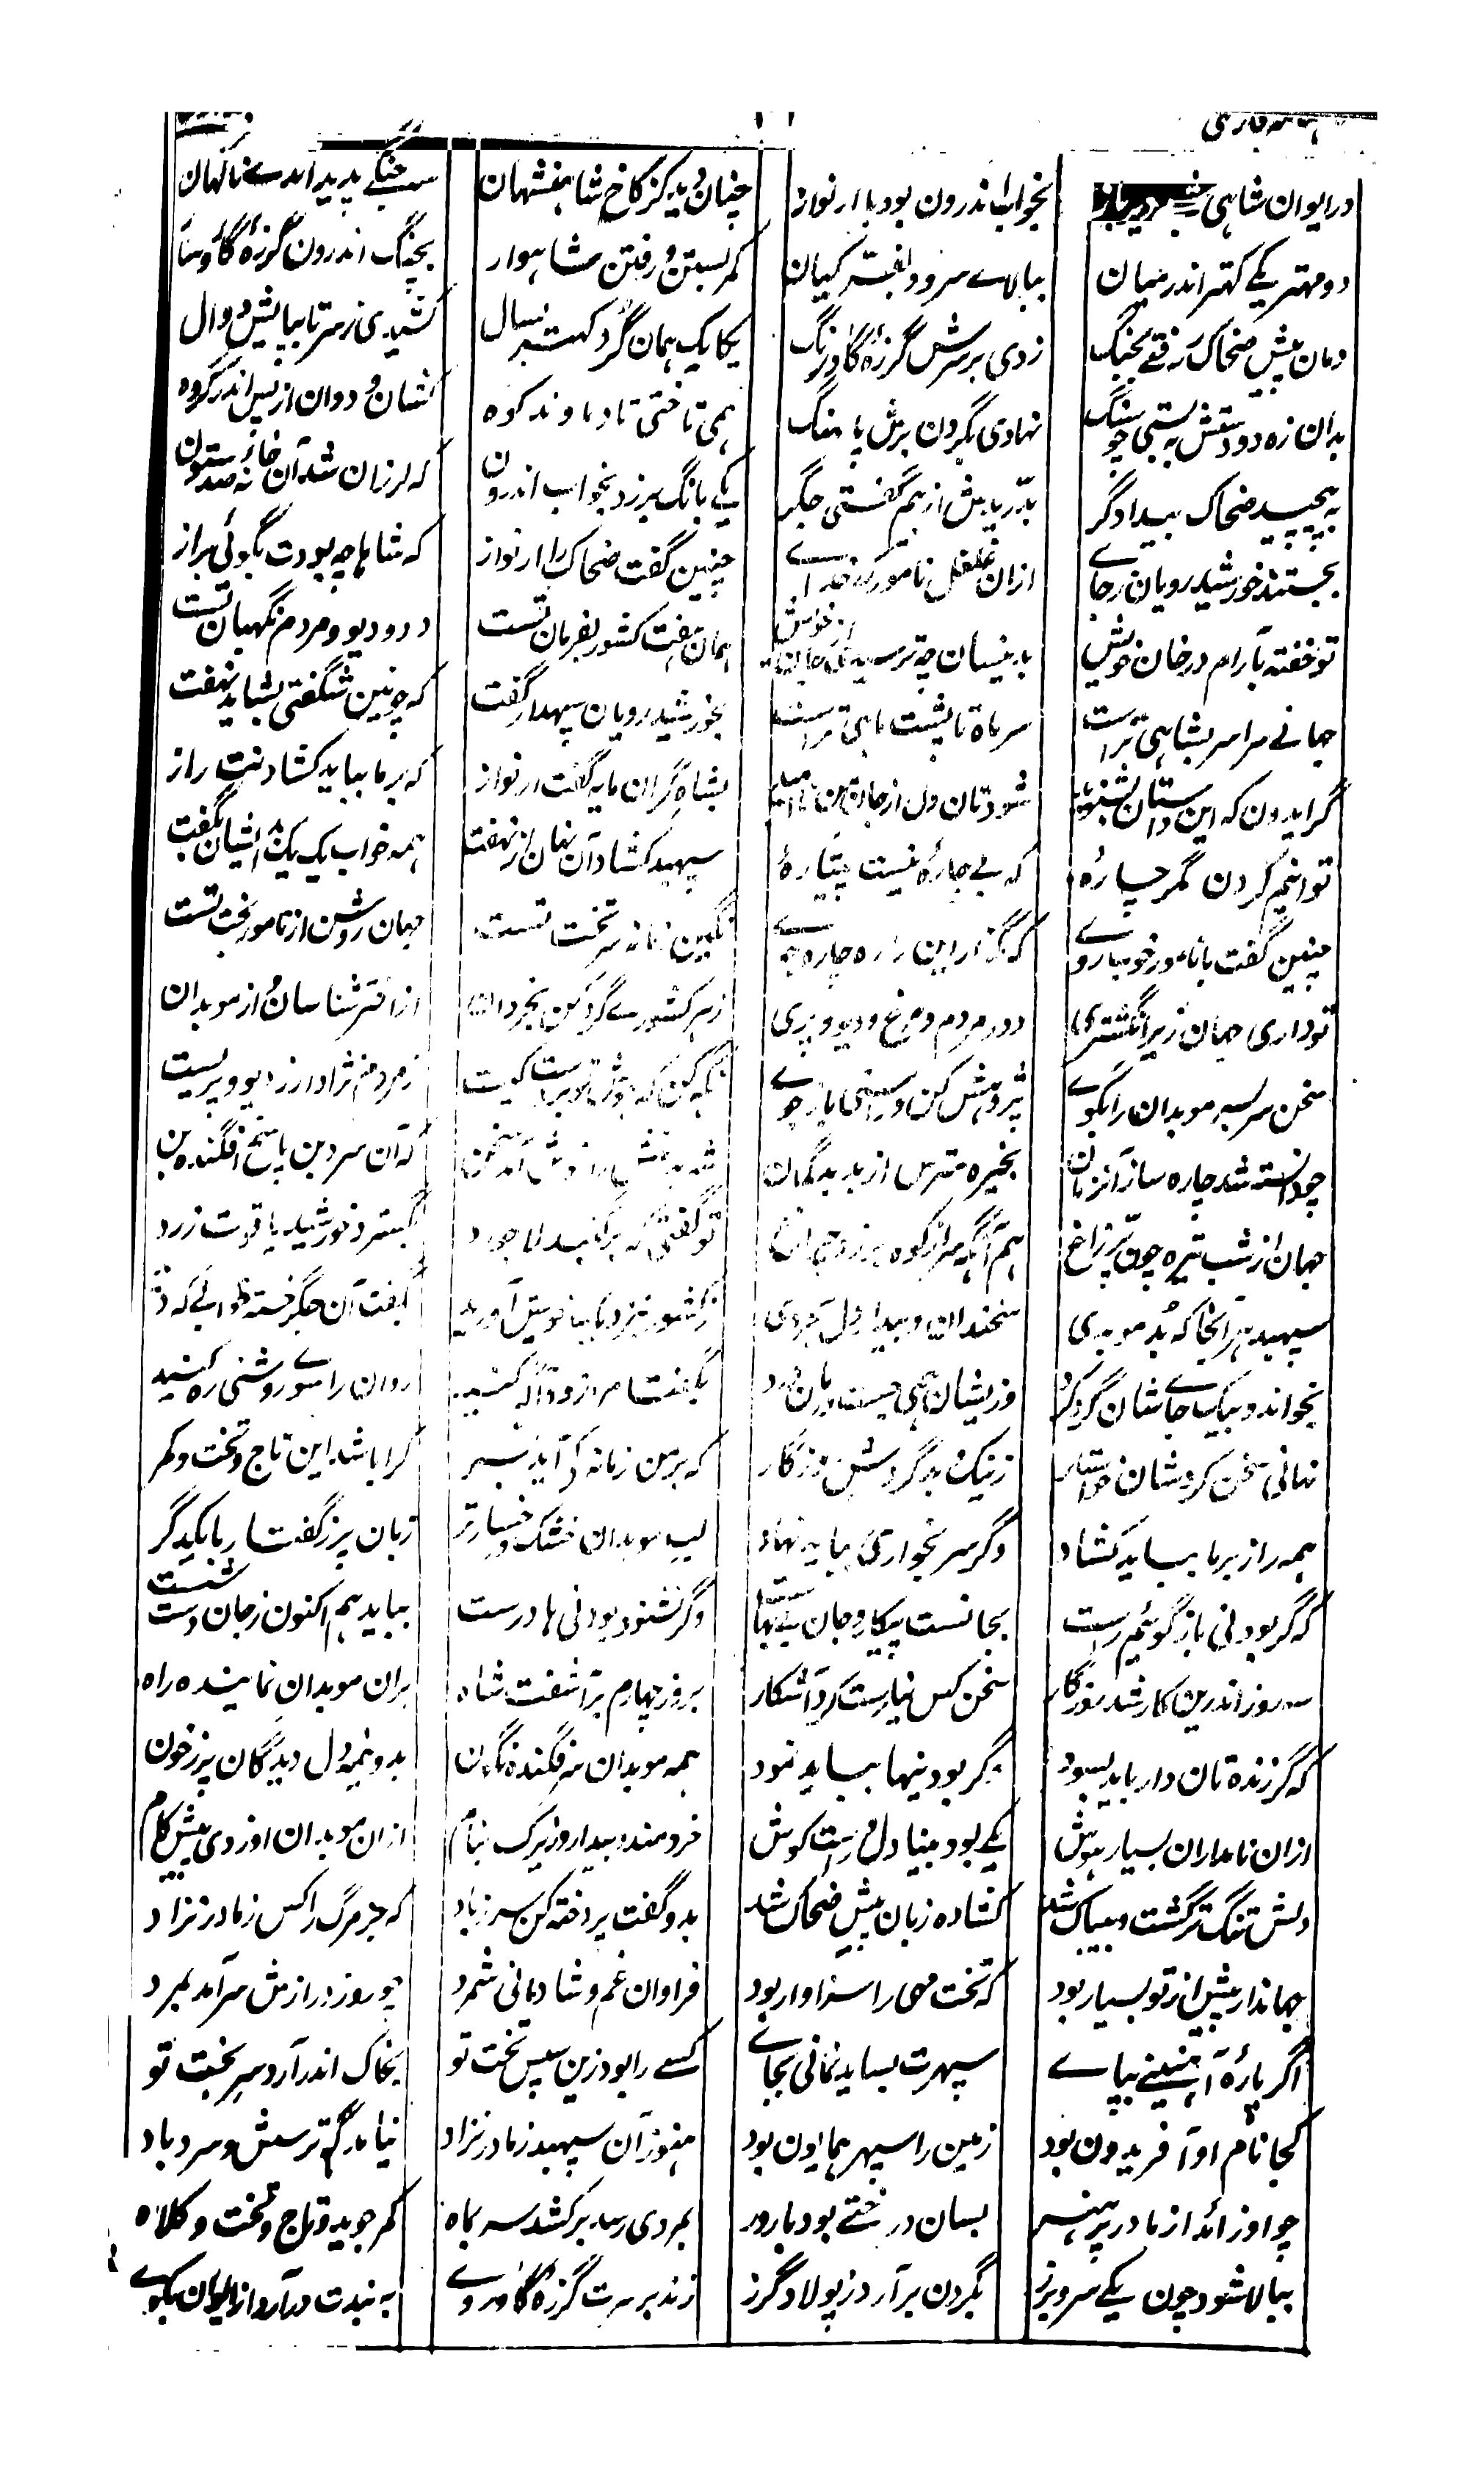 در ایوان شاهی شبے دیریاز بخواب اندرون بود با ارنواز چنان دید کز کاخ شاهنشهان سه جنگے پدید آمدے ناگهان
دو مهتر یکے کهتر اندر میان ببالاے سرو و بفر کیان کمر بستن و رفتن شاهوار بچنگ اندرون گرزهٔ گاؤسار
دمان پیش ضحاک رفتے بجنگ زدی بر سرش گرزهٔ گاورنگ یکایک همان گرد کهتر بسال کشیدی ز سر تا بپایش دوال
بدان زه دو دستش به بستی چو سنگ نهادی بگردن برش پالهنگ همی تاختی تا دماوند کوه کشان و دوان از پس اندر گروه
به پیچید ضحاک بیدادگر بدرّیدش از هم گفتی جگر یکے بانگ برزد بخواب اندرون که لرزان شد آن خانهٔ صد ستون
بجستند خورشید رویان ز جاے ازان غلغل نامور کدخداے چنین گفت ضحاک را ارنواز که شاها چه بودت بگوئی براز
تو خفته بآرام در خان خویش بدینسان چه ترسیدی از جان خویش همان هفت کشور بفرمان تست دد و دیو و مردم نگهبان تست
جهانے سراسر بشاهی تراست سر ماه تا پشت ماهی تراست بخورشید رویان سپهدار گفت که چونین شگفتی بشاید نهفت
گر ایدون که این داستان بشنوید شود تان دل از جان من ناامید بشاه گران مایه گفت ارنواز که بر ما بباید کشادنت راز
توانیم کردن مگر چارهٔ که بے چارهٔ نیست پتیارهٔ سپهبد کشاد آن نهان از نهفت همه خواب یک یک بدیشان بگفت
چنین گفت با نامور خوبروے که مگذار این را ره چاره جوے نگین زمانه سر تخت تست جهان روشن از نامور بخت تست
تو داری جهان زیر انگشتری دد و مردم و مرغ و دیو و پری ز هر کشورے گرد کن بخردان از اخترشناسان و از موبدان
سخن سر بسر موبدان را بگوے پژوهش کن و راستی باز جوے نگه کن که هوش تو بر دست کیست ز مردم نژاد ار ز دیو و پریست
چو دانسته شد چاره ساز آنزمان بخیره مترس از بد بدگمان که آن سرو بن پاسخ افگنده بن
جهان از شب تیره چون پرّ زاغ هم آنگه سر از کوه برزد چراغ تو گفتی که بر گنبد لاجورد بگسترد خورشید یاقوت زرد
سپهبد هر آنجا که بد موبدی سخندان و بیدار دل بخردی ز کشور بنزدیک خویش آورید بگفت آن جگر خسته خوابے که دید
بخواند و بیکجاے شان گرد کرد وز ایشان همی جست درمان درد بگفتا مرا زود آگه کنید روان را سوے روشنی ره کنید
نهانی سخن کرد شان خواستار ز نیک و بد گردش روزگار که بر من زمانه کے آید بسر کرا باشد این تاج و تخت و کمر
همه راز بر ما بباید کشاد وگر سر بخواری بباید نهاد لب موبدان خشک و رخسار تر زبان پر ز گفتار با یکدگر
که گر بودنی باز گوئیم راست بجانست پیکار و جان بے بهاست وگر نشنود بودنی ها درست بباید هم اکنون ز جان دست شست
سه روز اندرین کار شد روزگار سخن کس نیارست کرد آشکار بروز چهارم برآشفت شاه بران موبدان نماینده راه
که گر زنده تان دار باید بسود وگر بودنیها بباید نمود همه موبدان سر فگنده نگون بدو نیم دل دیدگان پر ز خون
ازان نامداران بسیار هوش یکے بود بینا دل و راست کوش خردمند و بیدار و زیرک بنام ازان موبدان او زدی پیش گام
دلش تنگ تر گشت و بیباک شد کشاده زبان پیش ضحاک شد بدو گفت پردخته کن سر ز باد که جز مرگ را کس ز مادر نزاد
جهاندار پیش از تو بسیار بود که تخت مهی را سزاوار بود فراوان غم و شادمانی شمرد چو روز درازش سر آمد بمرد
اگر بارهٔ آهنینے بپاے سپهرت بساید نمانی بجاے کسے را بود زین سپس تخت تو بخاک اندر آرد سر بخت تو
کجا نام او آفریدون بود زمین را سپهر همایون بود هنوز آن سپهبد ز مادر نزاد نیامد گه ترسش و سرد باد
چو او زائد از مادر پر هنر بسان درختے بود بارور بمردی رسد برکشد سر بماه کمر جوید و تاج و تخت و کلاه
ببالا شود چون یکے سرو برز بگردن برآرد ز پولاد گرز زند بر سرت گرزهٔ گاوروے به بندت درآرد از ایوان بکوے